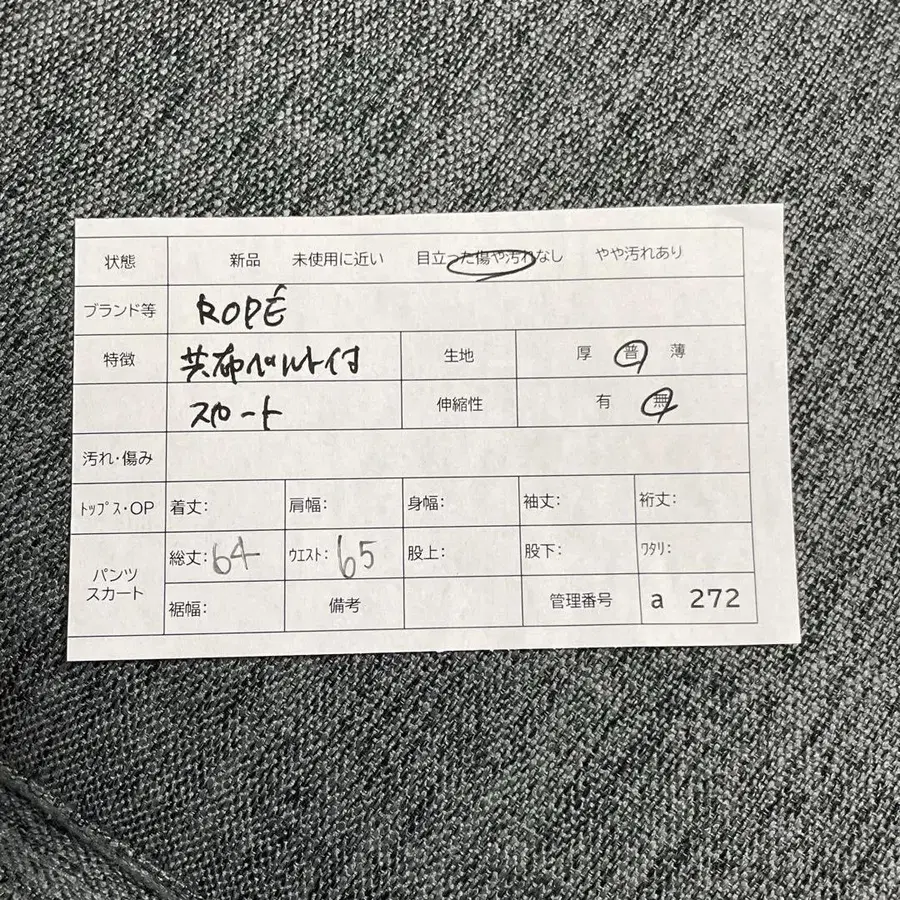 状態 新品 未使用に近い 目立った傷や汚れなし やや汚れあり
ブランド等 ROPÉ
特徴 共布ベルト付 生地 厚 普 薄
スカート 伸縮性 有 無
汚れ・傷み
トップス・OP 着丈: 肩幅: 身幅: 袖丈: 裄丈:
パンツ スカート 総丈: 64 ウエスト: 65 股上: 股下: ワタリ:
裾幅: 備考 管理番号 a 272